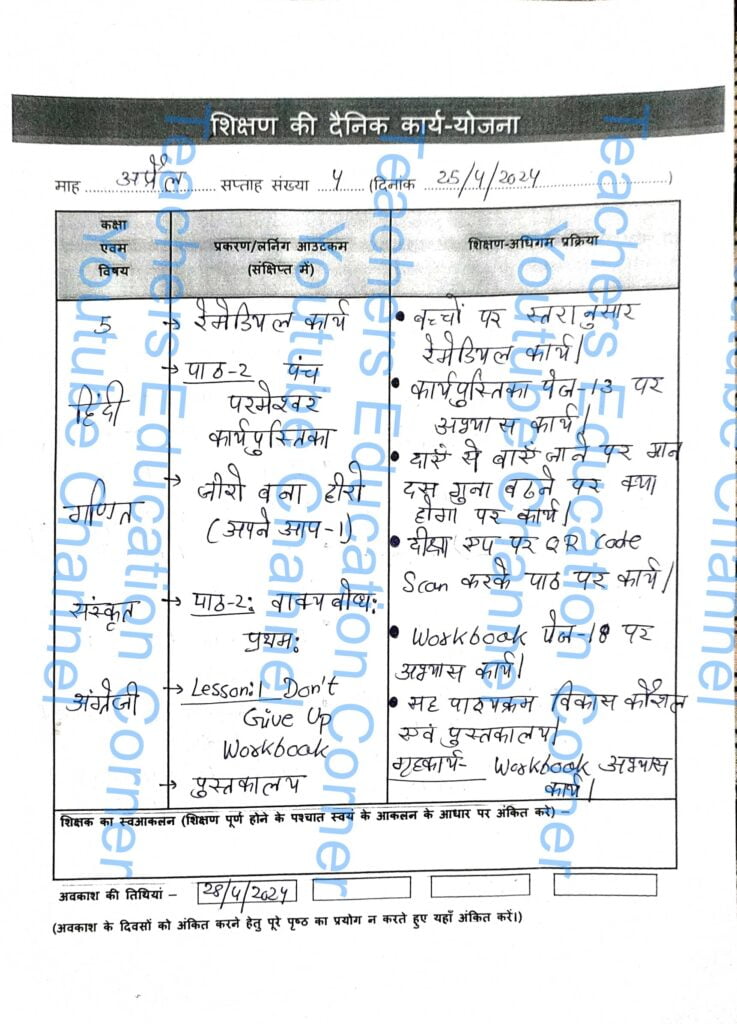 शिक्षण की दैनिक कार्य-योजना
माह अप्रैल सप्ताह संख्या 4 (दिनांक 25/4/2024)
कक्षा एवम विषय
प्रकरण/लर्निग आउटकम (संक्षिप्त में)
शिक्षण-अधिगम प्रक्रिया
5
→ रेमेडियल कार्य
• बच्चों पर स्तरानुसार
रेमेडियल कार्य।
हिंदी
→ पाठ-2 पंच
परमेश्वर
कार्यपुस्तिका
• कार्यपुस्तिका पेज-13 पर
अभ्यास कार्य।
गणित
→ जीरो बना हीरो
(अपने आप-1)
• दाएं से बाएं जाने पर मान
दस गुना बढने पर क्या
होगा पर कार्य।
संस्कृत
→ पाठ-2: वाक्य बोध:
प्रथम:
• दीक्षा एप पर QR Code
Scan करके पाठ पर कार्य।
अंग्रेजी
→ Lesson:1 Don't
Give Up
Workbook
• Workbook पेज-18 पर
अभ्यास कार्य।
→ पुस्तकालय
• सह पाठ्यक्रम विकास कौशल
एवं पुस्तकालय।
गृहकार्य- Workbook अभ्यास
कार्य।
शिक्षक का स्वआकलन (शिक्षण पूर्ण होने के पश्चात स्वयं के आकलन के आधार पर अंकित करे) –
अवकाश की तिथियां – 28/4/2024
(अवकाश के दिवसों को अंकित करने हेतु पूरे पृष्ठ का प्रयोग न करते हुए यहाँ अंकित करें।)
Teachers Education Corner
Youtube Channel
Teachers Education Corner
Youtube Channel
Teachers Education Corner
Youtube Channel